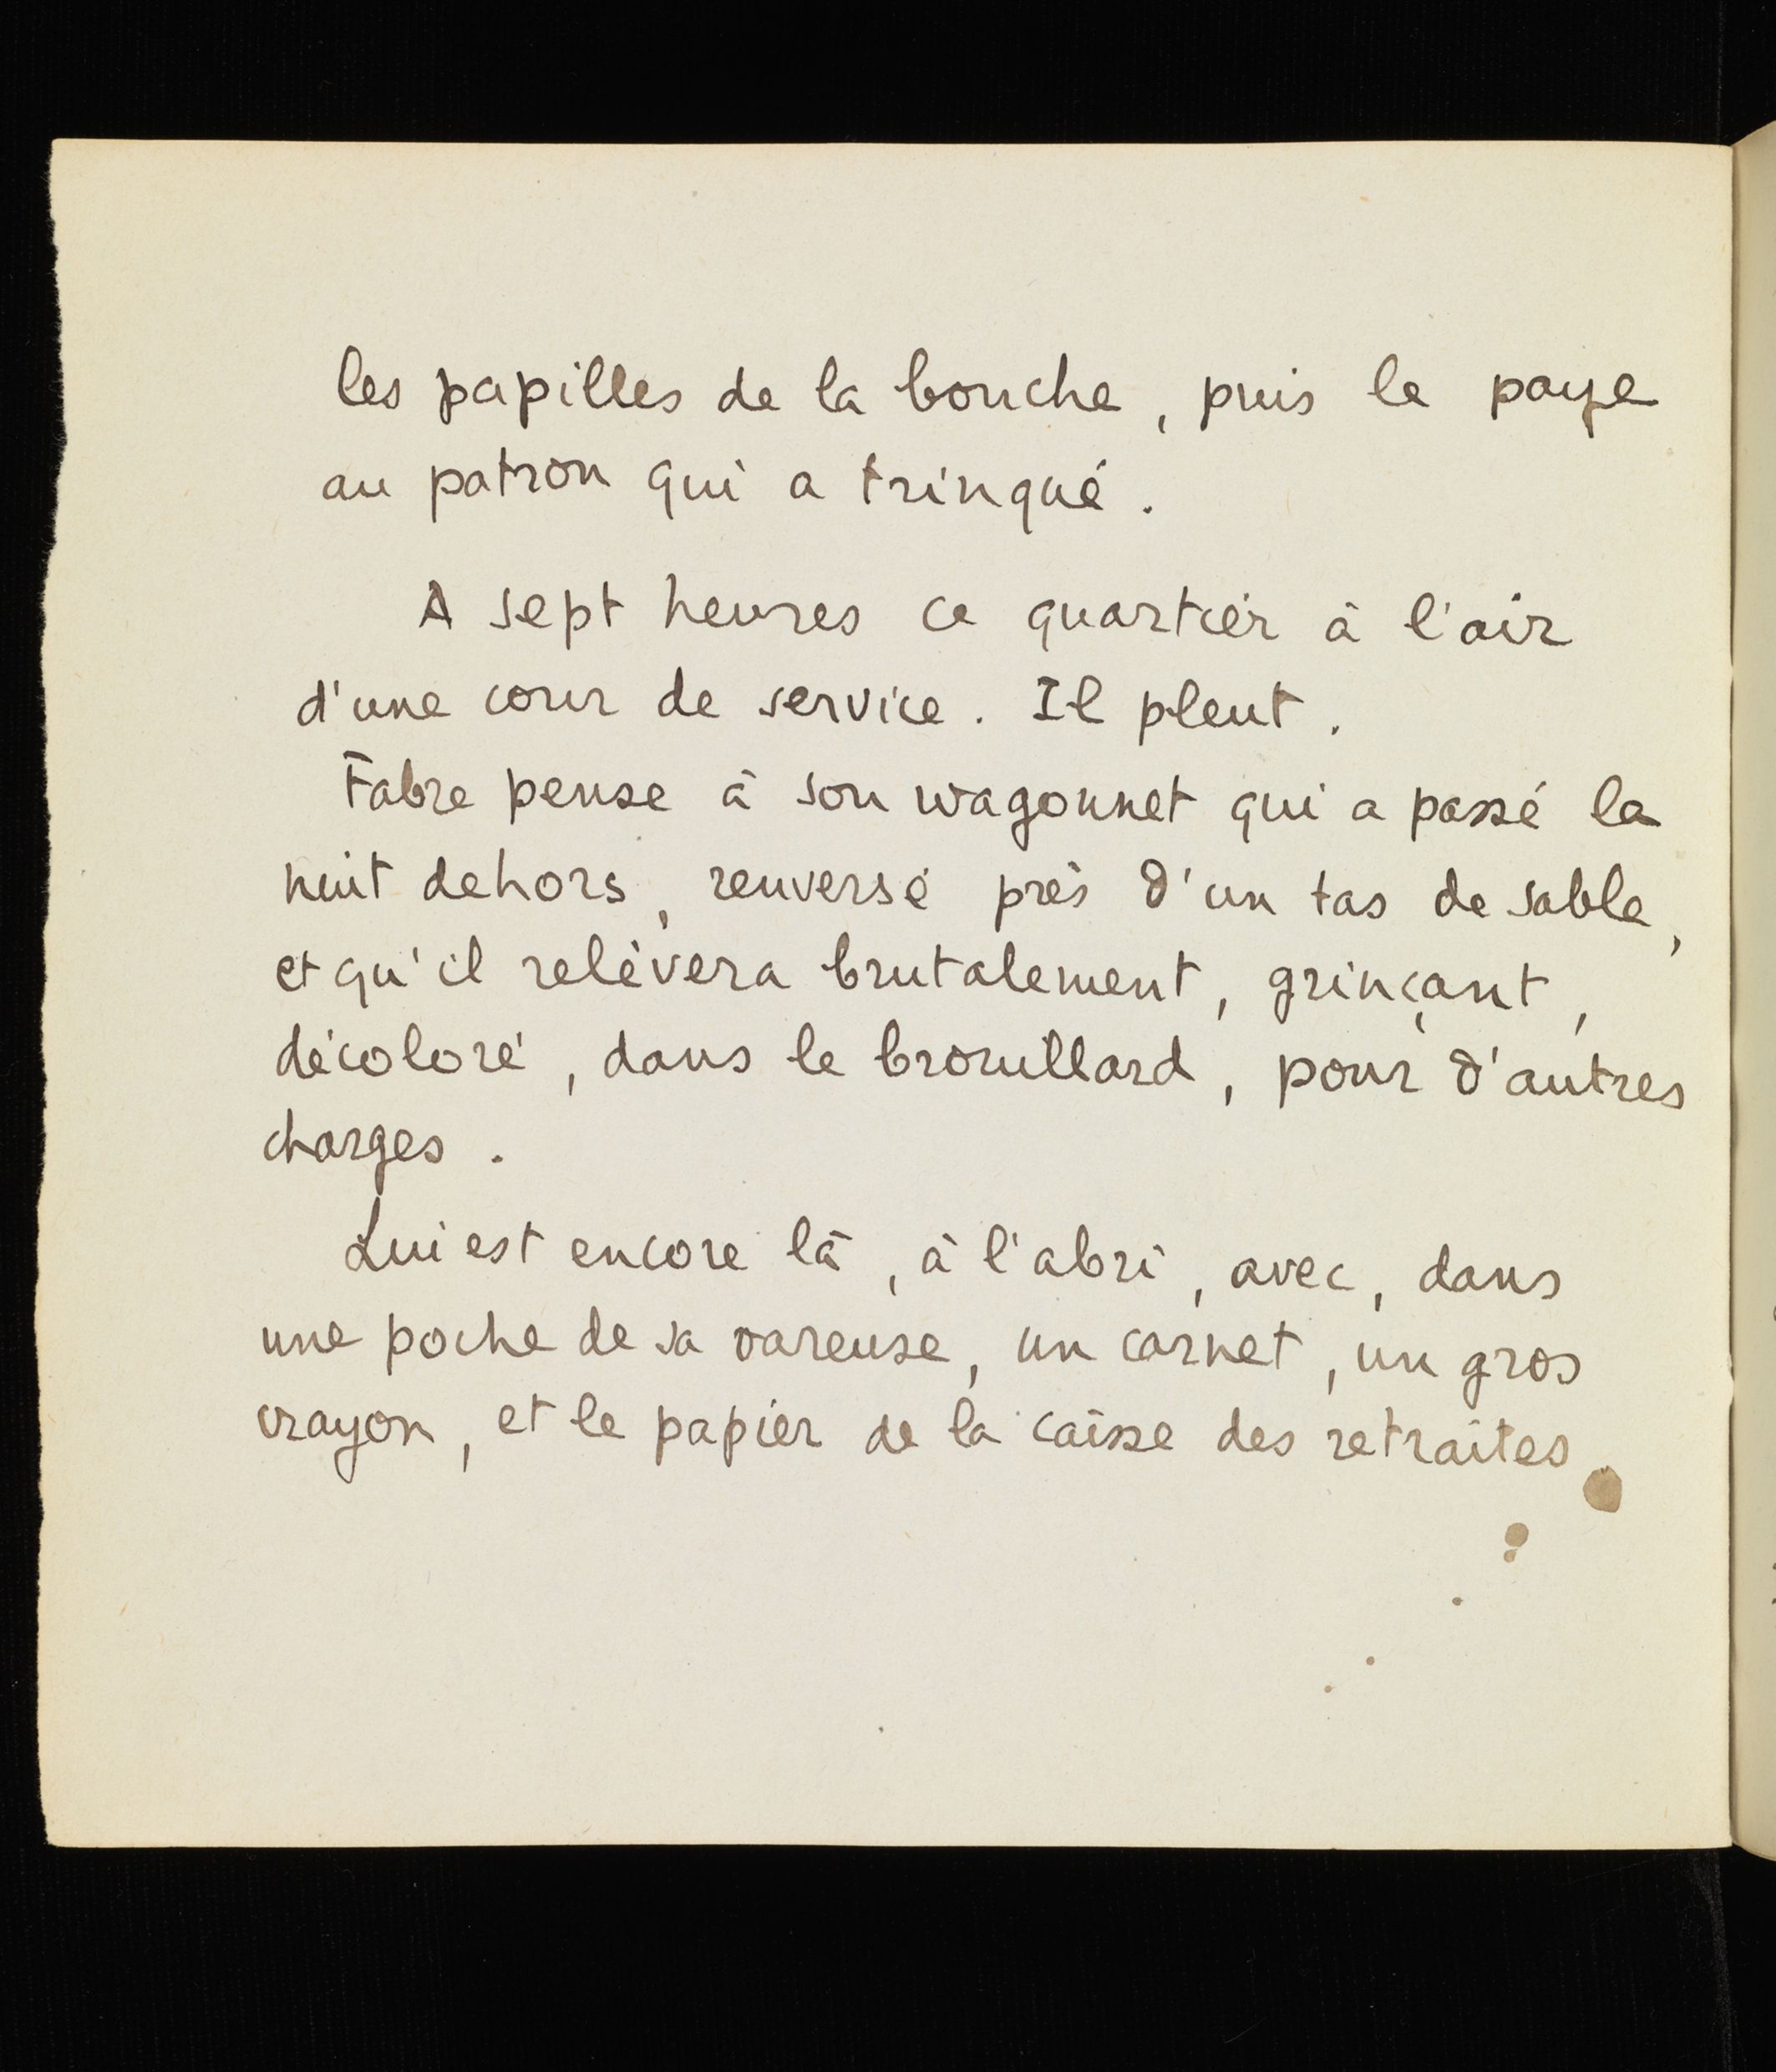 les papilles de la bouche, puis le paye
au patron qui a trinqué.
A sept heures ce quartier à l'air
d'une cour de service. Il pleut.
Fabre pense à son wagonnet qui a passé la
nuit dehors, renversé près d'un tas de sable,
et qu'il relèvera brutalement, grinçant,
décoloré, dans le brouillard, pour d'autres
charges.
Lui est encore là, à l'abri, avec, dans
une poche de sa vareuse, un carnet, un gros
crayon, et le papier de la caisse des retraites.